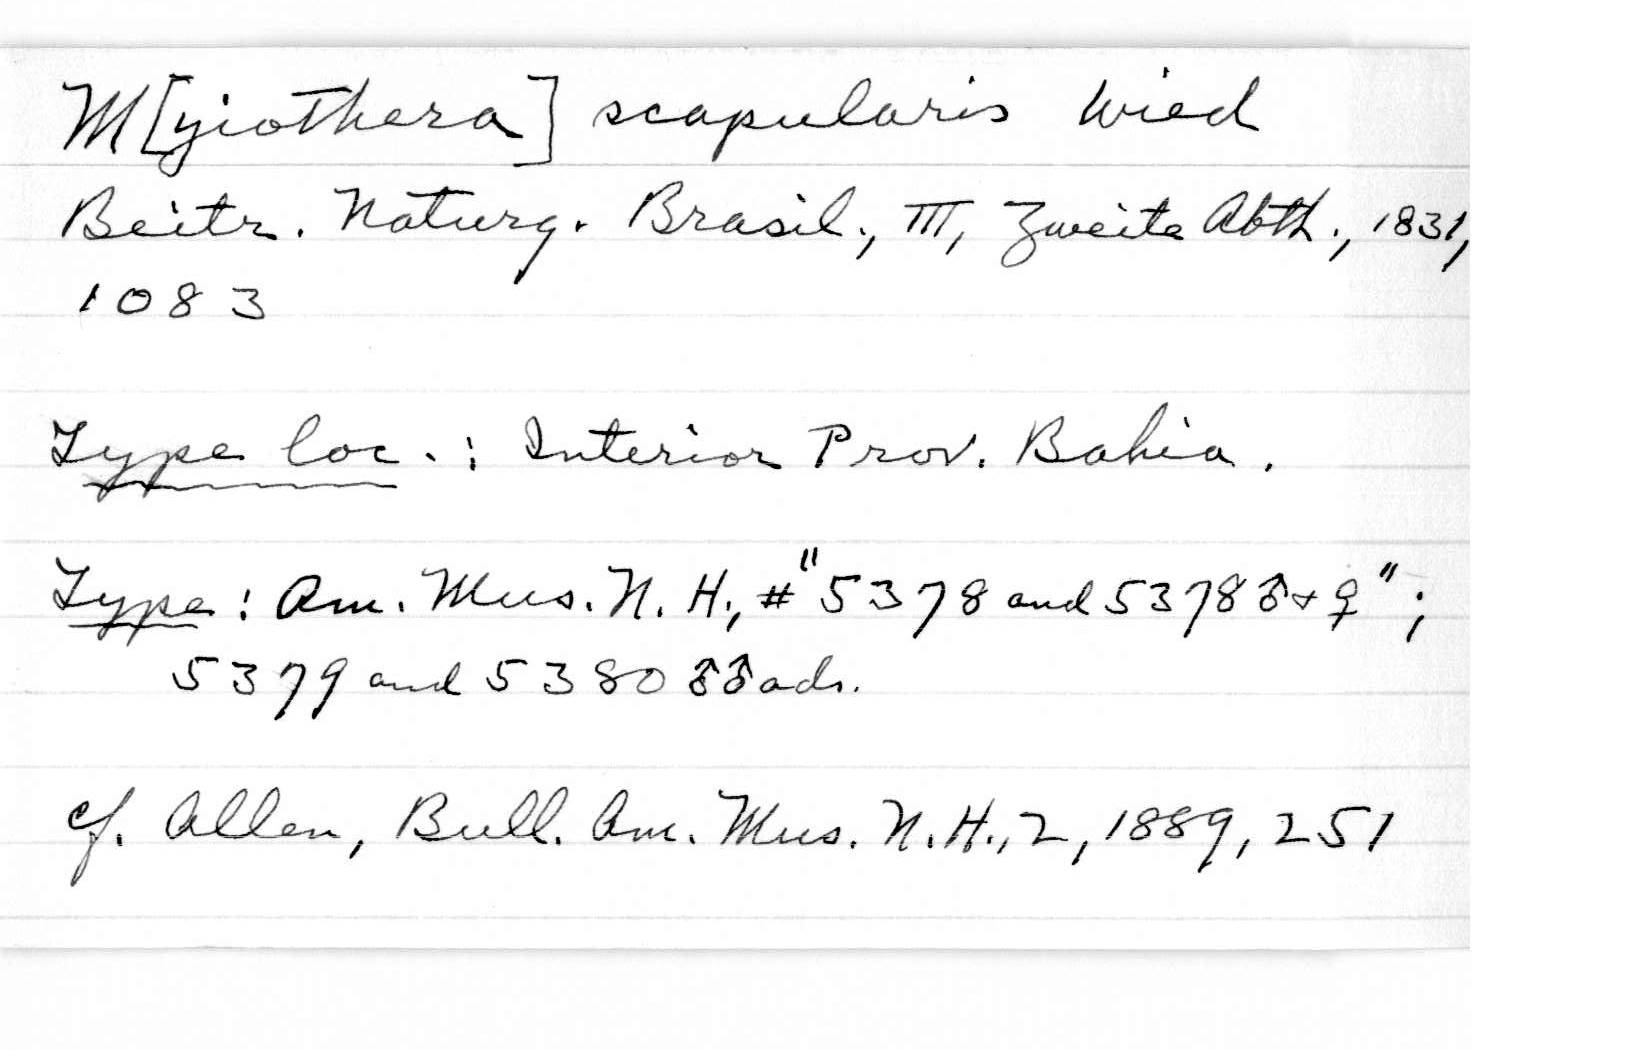 M[yiothera] scapularis Wied
Beitr. Naturg. Brasil., III, Zweite Abth., 1831,
1083
Type loc.: Interior Prov. Bahia.
Type: Am. Mus. N. H., #"5378 and 5378 ♂ + ♀";
5379 and 5380 ♂♂ ads.
cf. Allen, Bull. Am. Mus. N.H., 2, 1889, 251